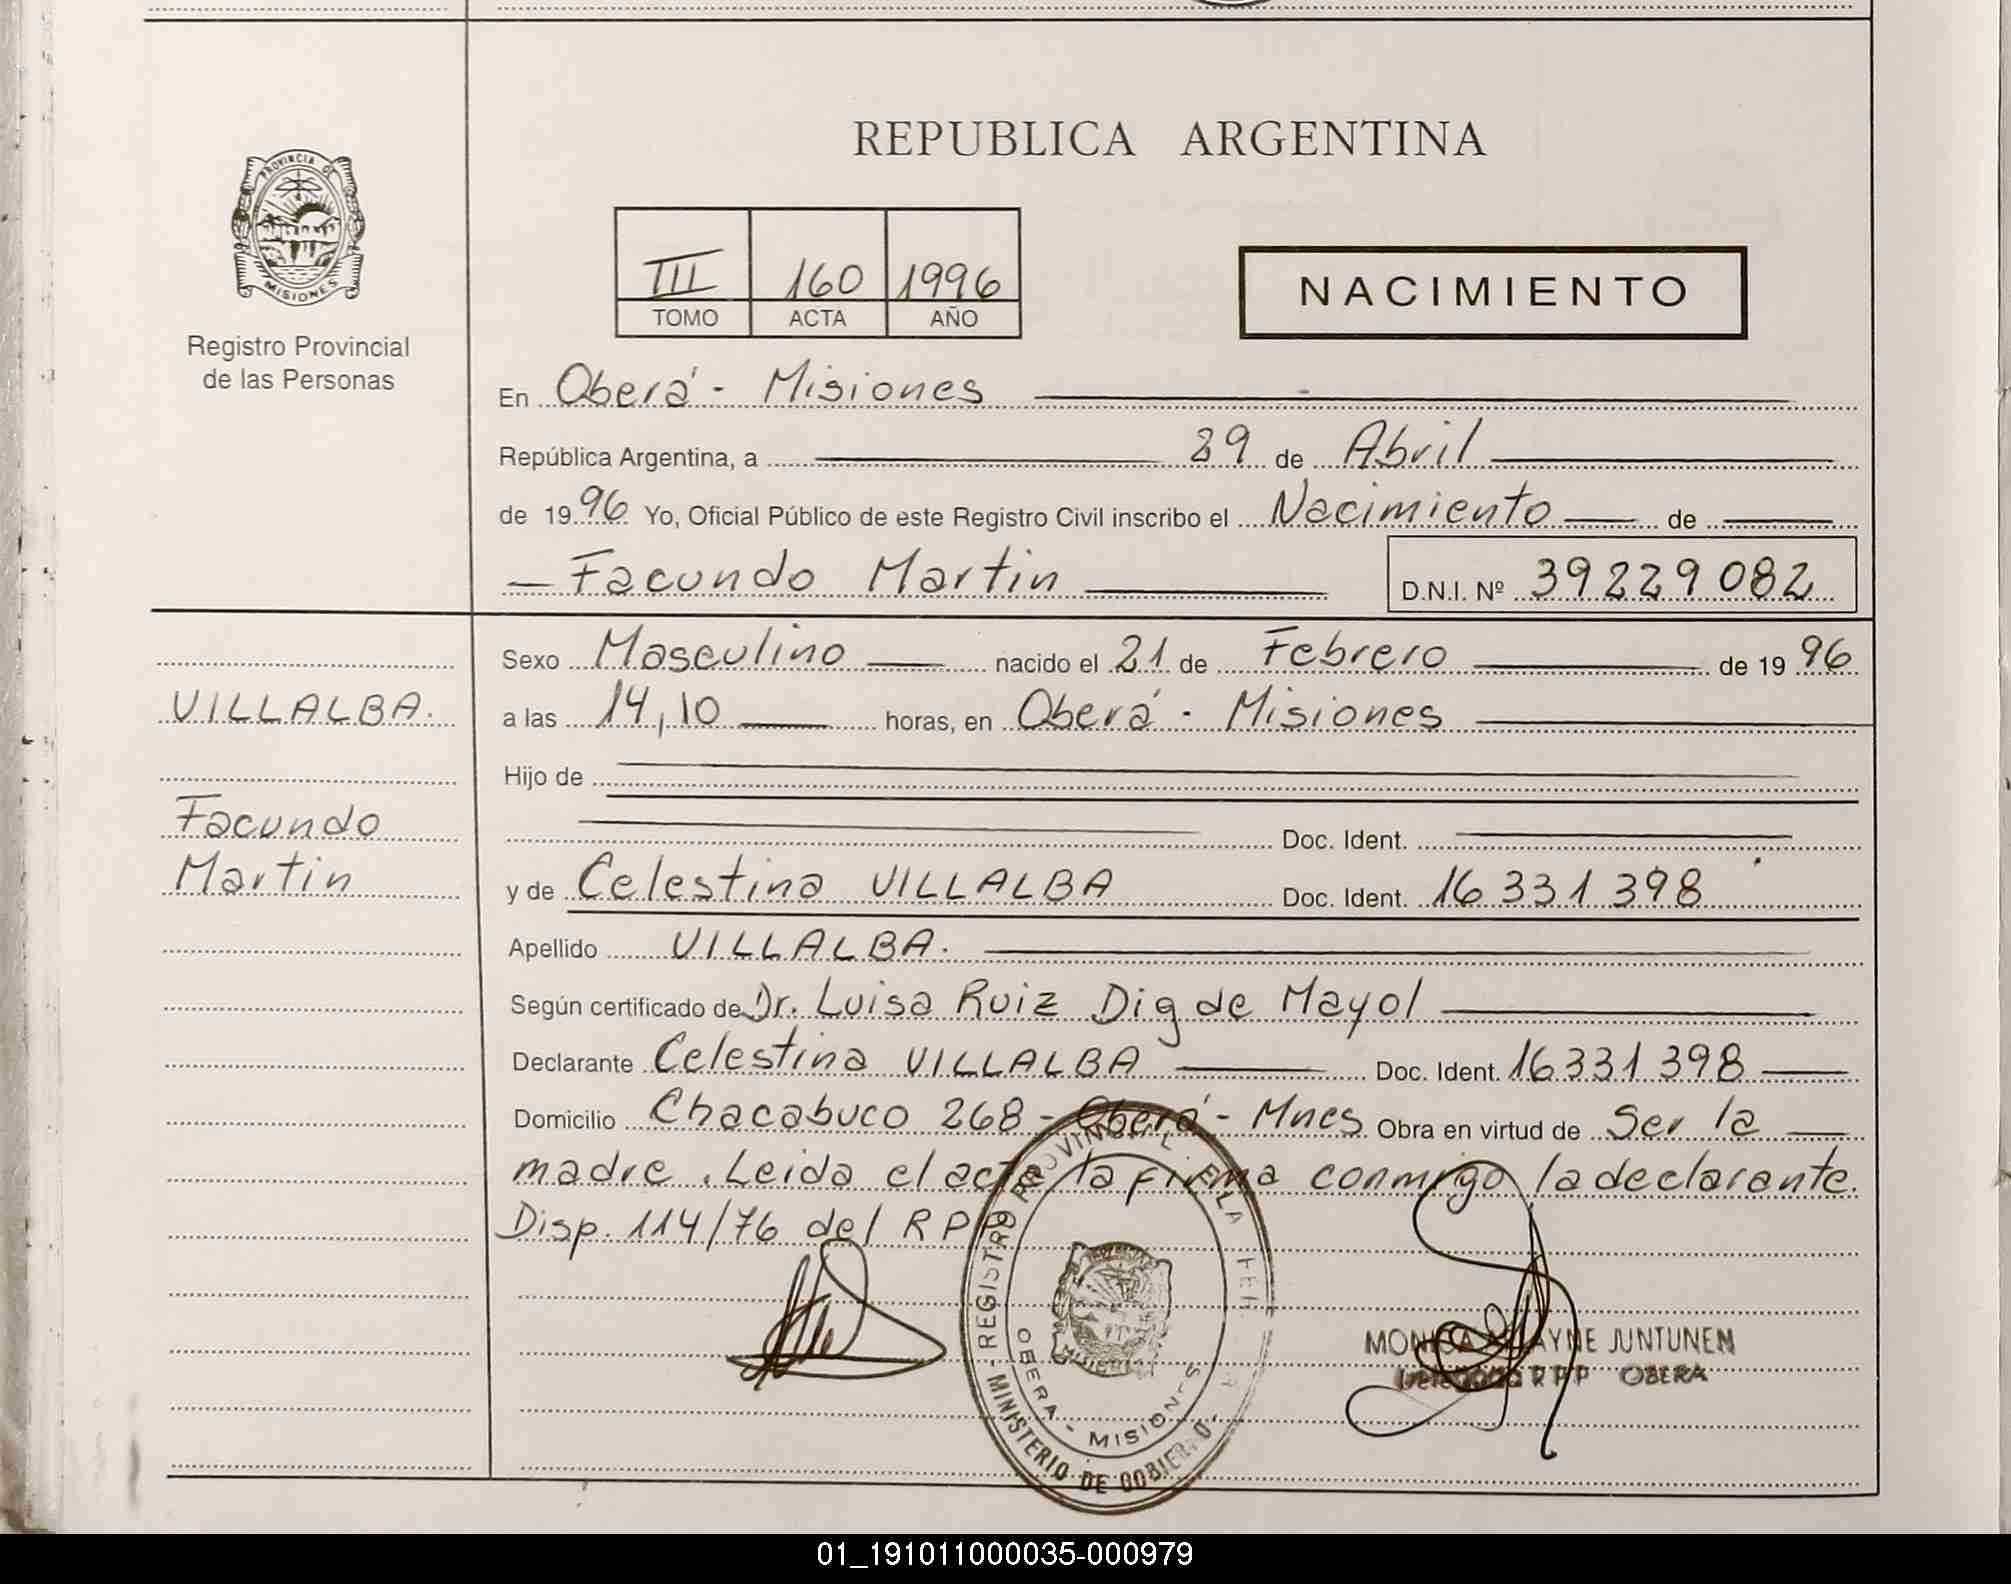 REPUBLICA ARGENTINA
PROVINCIA DE
MISIONES
Registro Provincial
de las Personas
III 160 1996
TOMO ACTA AÑO
NACIMIENTO
En Oberá - Misiones
República Argentina, a 29 de Abril
de 19 96 Yo, Oficial Público de este Registro Civil inscribo el Nacimiento de
Facundo Martin D.N.I. Nº 39229082
VILLALBA.
Facundo
Martin
Sexo Masculino nacido el 21 de Febrero de 19 96
a las 14,10 horas, en Oberá - Misiones
Hijo de
Doc. Ident.
y de Celestina VILLALBA Doc. Ident. 16 331 398
Apellido VILLALBA.
Según certificado de Dr. Luisa Ruiz Dig de Mayol
Declarante Celestina VILLALBA Doc. Ident. 16 331 398
Domicilio Chacabuco 268 - Oberá - Mnes Obra en virtud de Ser la
madre. Leida el acta la firma conmigo la declarante.
Disp. 114/76 del RPP
REGISTRO PROVINCIAL
OBERA - MISIONES
MINISTERIO DE GOBIERNO
MONICA JUNTUNEN
Delegada R P P OBERA
01_191011000035-000979